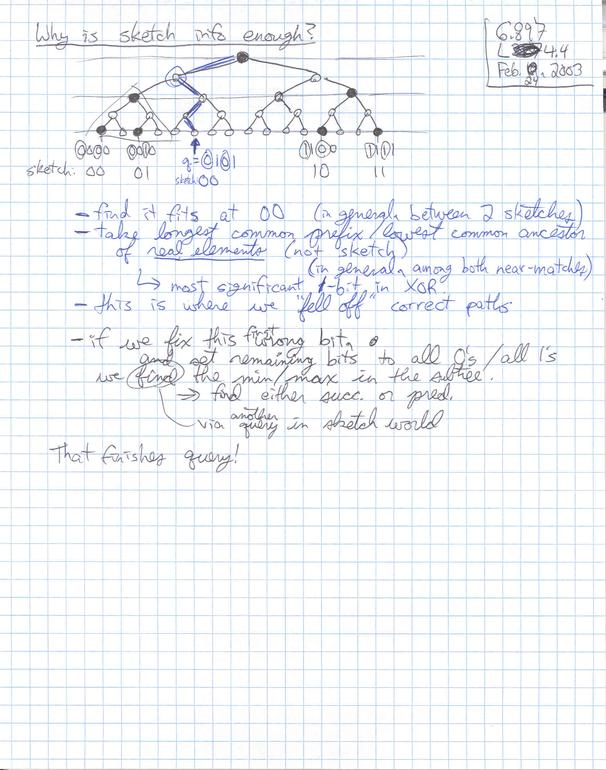 Why is sketch info enough?
6.897
L 4.4
Feb. 24, 2003
0000 0010 1100 1111
sketch: 00 01 10 11
q=0101
sketch 00
- find it fits at 00 (in general, between 2 sketches)
- take longest common prefix/lowest common ancestor
of real elements (not sketch)
(in general, among both near-matches)
↳ most significant 1-bit in XOR
- this is where we "fell off" correct paths
- if we fix this first wrong bit,
and set remaining bits to all 0's/all 1's
we find the min/max in the subtree.
⇒ find either succ. or pred.
via another query in sketch world
That finishes query!